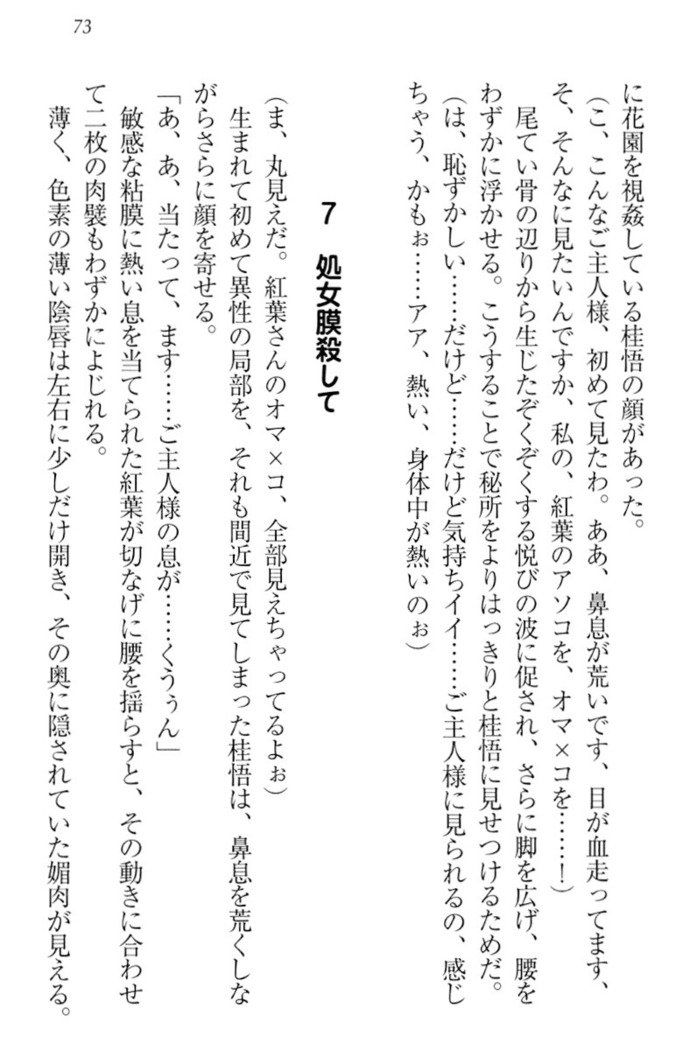 73
に花園を視姦している桂悟の顔があった。
(こ、こんなご主人様、初めて見たわ。ああ、鼻息が荒いです、目が血走ってます、
そ、そんなに見たいんですか、私の、紅葉のアソコを、オマ×コを……！)
尾てい骨の辺りから生じたぞくぞくする悦びの波に促され、さらに脚を広げ、腰を
わずかに浮かせる。こうすることで秘所をよりはっきりと桂悟に見せつけるためだ。
(は、恥ずかしい……だけど……だけど気持ちイイ……ご主人様に見られるの、感じ
ちゃう、かもぉ……アア、熱い、身体中が熱いのぉ)
7 処女膜殺して
(ま、丸見えだ。紅葉さんのオマ×コ、全部見えちゃってるよぉ)
生まれて初めて異性の局部を、それも間近で見てしまった桂悟は、鼻息を荒くしな
がらさらに顔を寄せる。
「あ、あ、当たって、ます……ご主人様の息が……くうぅん」
敏感な粘膜に熱い息を当てられた紅葉が切なげに腰を揺らすと、その動きに合わせ
て二枚の肉襞もわずかによじれる。
薄く、色素の薄い陰唇は左右に少しだけ開き、その奥に隠されていた媚肉が見える。